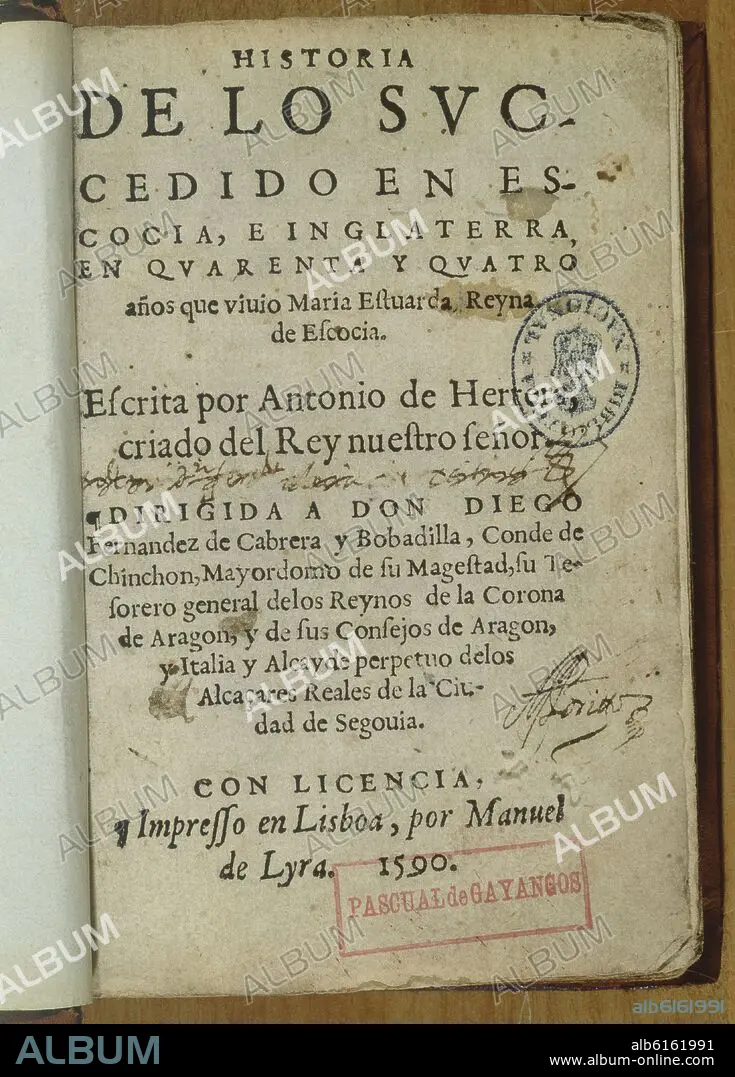 HISTORIA
DE LO SVC-
CEDIDO EN ES-
COCIA, E INGLATERRA,
EN QVARENTA Y QVATRO
años que viuio Maria Eſtuarda, Reyna
de Eſcocia.
Eſcrita por Antonio de Herrera,
criado del Rey nueſtro ſeñor.
¶DIRIGIDA A DON DIEGO
Fernandez de Cabrera y Bobadilla, Conde de
Chinchon, Mayordomo de ſu Mageſtad, ſu Te-
ſorero general delos Reynos de la Corona
de Aragon, y de ſus Conſejos de Aragon,
y Italia y Alcayde perpetuo delos
Alcaçares Reales de la Ciu-
dad de Segouia.
CON LICENCIA,
¶ Impreſſo en Lisboa, por Manuel
de Lyra. 1590.
PASCUAL de GAYANGOS
alb6161991
ALBUM
alb6161991
www.album-online.com